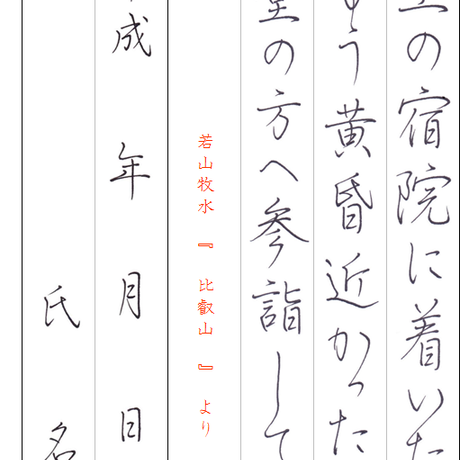 の宿院に着いた
う黄昏近かった
の方へ参詣して
若山牧水『比叡山』より
成年月日
氏名